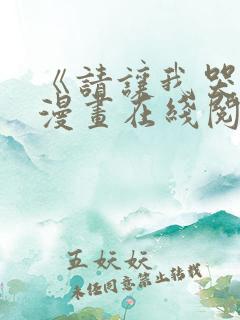 《請讓我哭
漫畫在綫閱
五妖妖
未经同意禁止转载